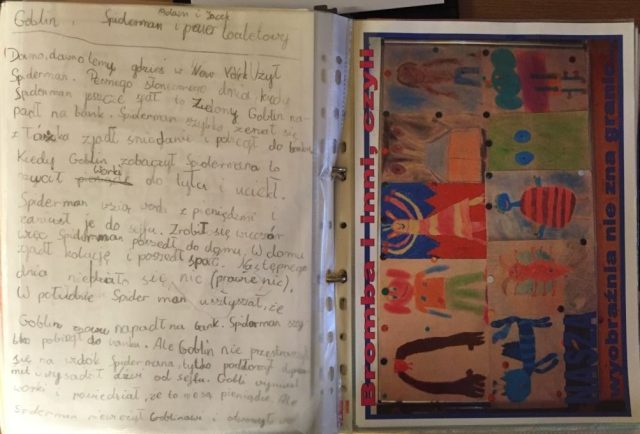 Adaim i Jacek
Goblin, Spiderman i paier toaletowy
Dawno, dawno temy, gdzieś w Nowo York żył
Spiderman. Pewnego słonecznego dnia, kiedy
Spiderman jeszcze spał to Zielony Goblin na-
padł na bank. Spiderman szybko zerwał się
z łóżka zjadł śniadanie i pobiegł do banku
Kiedy Goblin zobaczył Spidermana to
rzucił worki do tyłu i uciekł.
Spiderman wzioł worki z pieniędzmi i
zaniusł je do sejfu. Zrobił się wieczór
więc Spiderman poszedł do domu. W domu
zjadł kolację i poszedł spać. Następnego
dnia niedziało się nic (prawie nic).
W południe Spider man usłyszał, że
Goblin napadł na bank. Spiderman szy-
bko pobiegł do banku. Ale Goblin nie przestraszył
się na widok Spidermana, tylko podłorzył dyna-
mit i wysadził dźwi od sejfu. Gobli wyniusł
worki i powiedział, że to nie są pieniądze. Ale
Spiderman nieuwieżył Goblinowi i
Bromba i inni, czyli
NASZA
wyobraźnia nie zna granic...